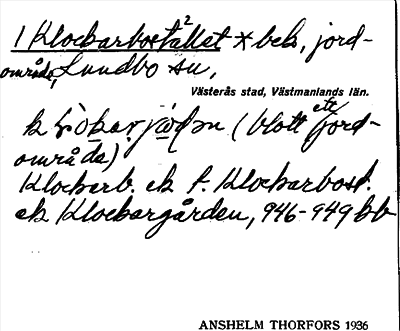 1 Klockarbostället 2 * beb, jord-
område, Lundbo sn,
Västerås stad, Västmanlands län.
(blott ett jord-
område)
Klockarb. ek f. Klockarbost.
ek Klockargården, 946-949 bb
ANSHELM THORFORS 1936